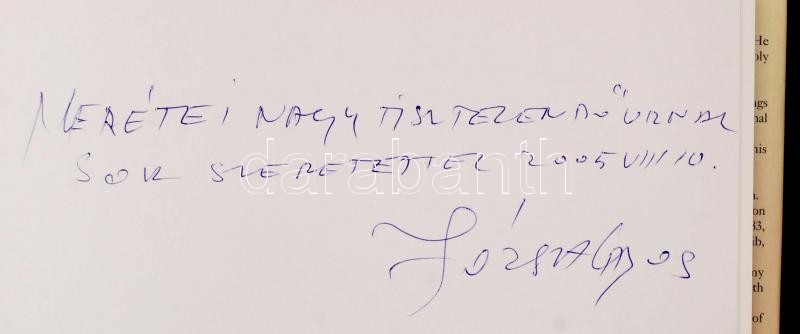 NERÉTEI NAGY TISZTELENDŐ ÚRNAK
SOK SZERETETTEL 2005 VIII 10.
JÓZSA LAJOS
darabanth
He
ply
ngs
nal
his
n.
on
83,
ib,
ny
th
of